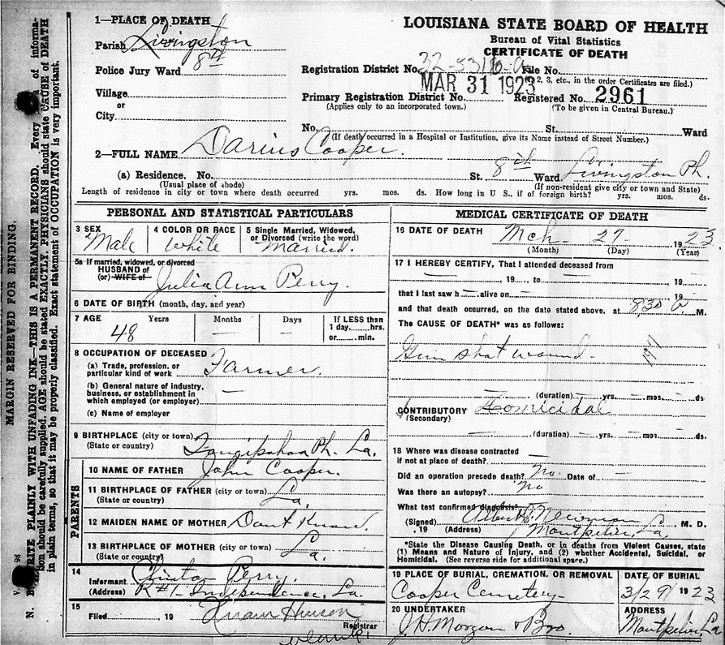 LOUISIANA STATE BOARD OF HEALTH
Bureau of Vital Statistics
CERTIFICATE OF DEATH
1—PLACE OF DEATH
Parish Livingston
Police Jury Ward 8th
Village
or
City
Registration District No. File No.
2, 3, etc., in the order Certificates are filed.)
MAR 31 1923
Primary Registration District No. Registered No. 2961
(Applies only to an incorporated town.) (To be given in Central Bureau.)
No. St. Ward
(If death occurred in a Hospital or Institution, give its Name instead of Street Number.)
2—FULL NAME Darius Cooper.
(a) Residence. No. St. 8th Ward Livingston Ph.
(Usual place of abode) (If non-resident give city or town and State)
Length of residence in city or town where death occurred yrs. mos. ds. How long in U. S., if of foreign birth? yrs. mos. ds.
PERSONAL AND STATISTICAL PARTICULARS
3 SEX 4 COLOR OR RACE 5 Single Married, Widowed, or Divorced (write the word)
Male White Married.
5a If married, widowed, or divorced
HUSBAND of
(or) WIFE of Julia Ann Perry.
6 DATE OF BIRTH (month, day, and year)
7 AGE Years Months Days If LESS than
1 day,....hrs.
or......min.
48 — —
8 OCCUPATION OF DECEASED
(a) Trade, profession, or
particular kind of work Farmer.
(b) General nature of industry,
business, or establishment in
which employed (or employer) —
(c) Name of employer
9 BIRTHPLACE (city or town)
(State or country) Tangipahoa Ph. La.
PARENTS
10 NAME OF FATHER John Cooper.
11 BIRTHPLACE OF FATHER (city or town)
(State or country) La.
12 MAIDEN NAME OF MOTHER Dont Know.
13 BIRTHPLACE OF MOTHER (city or town)
(State or country) La.
14
Informant Clinton Perry.
(Address) R#1- Independence, La.
15
Filed 19
Registrar
MEDICAL CERTIFICATE OF DEATH
16 DATE OF DEATH Mch 27 1923
(Month) (Day) (Year)
17 I HEREBY CERTIFY, That I attended deceased from
—, 19 to —, 19
that I last saw h— alive on —, 19
and that death occurred, on the date stated above, at M.
The CAUSE OF DEATH* was as follows:
Gun shot wound.
(duration) yrs. mos. ds.
CONTRIBUTORY Homicidal
(Secondary)
(duration) yrs. mos. ds.
18 Where was disease contracted
if not at place of death? —
Did an operation precede death? no Date of —
Was there an autopsy? no
What test confirmed diagnosis?
(Signed) Albert Newman M. D.
, 19 (Address) Montpelier La
*State the Disease Causing Death, or in deaths from Violent Causes, state
(1) Means and Nature of Injury, and (2) whether Accidental, Suicidal, or
Homicidal. (See reverse side for additional space.)
19 PLACE OF BURIAL, CREMATION, OR REMOVAL DATE OF BURIAL
Cooper Cemetery 3/29 1923
20 UNDERTAKER ADDRESS
J.H. Morgan & Bro. Montpelier La
MARGIN RESERVED FOR BINDING.
N. B.—WRITE PLAINLY WITH UNFADING INK—THIS IS A PERMANENT RECORD. Every of informa-
tion should be carefully supplied. AGE should be stated EXACTLY. PHYSICIANS should state CAUSE OF DEATH
in plain terms, so that it may be properly classified. Exact statement of OCCUPATION is very important.